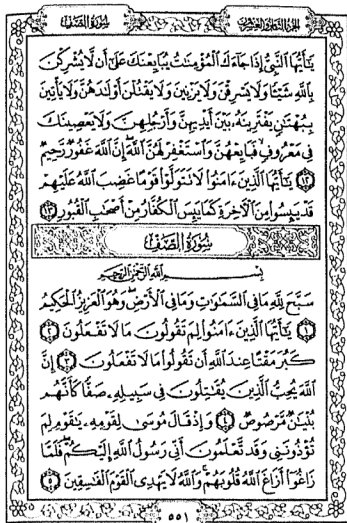 سُورَةُ الصَّفِّ
الجزء الثامن والعشرون
يَٰٓأَيُّهَا ٱلنَّبِيُّ إِذَا جَآءَكَ ٱلْمُؤْمِنَٰتُ يُبَايِعْنَكَ عَلَىٰٓ أَن لَّا يُشْرِكْنَ
بِٱللَّهِ شَيْـًٔا وَلَا يَسْرِقْنَ وَلَا يَزْنِينَ وَلَا يَقْتُلْنَ أَوْلَٰدَهُنَّ وَلَا يَأْتِينَ
بِبُهْتَٰنٍ يَفْتَرِينَهُۥ بَيْنَ أَيْدِيهِنَّ وَأَرْجُلِهِنَّ وَلَا يَعْصِينَكَ
فِى مَعْرُوفٍ فَبَايِعْهُنَّ وَٱسْتَغْفِرْ لَهُنَّ ٱللَّهَ إِنَّ ٱللَّهَ غَفُورٌ رَّحِيمٌ
١٢ يَٰٓأَيُّهَا ٱلَّذِينَ ءَامَنُوا۟ لَا تَتَوَلَّوْا۟ قَوْمًا غَضِبَ ٱللَّهُ عَلَيْهِمْ
قَدْ يَئِسُوا۟ مِنَ ٱلْءَاخِرَةِ كَمَا يَئِسَ ٱلْكُفَّارُ مِنْ أَصْحَٰبِ ٱلْقُبُورِ ١٣
سُورَةُ الصَّفِّ
بِسْمِ ٱللَّهِ ٱلرَّحْمَٰنِ ٱلرَّحِيمِ
سَبَّحَ لِلَّهِ مَا فِى ٱلسَّمَٰوَٰتِ وَمَا فِى ٱلْأَرْضِ وَهُوَ ٱلْعَزِيزُ ٱلْحَكِيمُ
١ يَٰٓأَيُّهَا ٱلَّذِينَ ءَامَنُوا۟ لِمَ تَقُولُونَ مَا لَا تَفْعَلُونَ ٢
كَبُرَ مَقْتًا عِندَ ٱللَّهِ أَن تَقُولُوا۟ مَا لَا تَفْعَلُونَ ٣ إِنَّ
ٱللَّهَ يُحِبُّ ٱلَّذِينَ يُقَٰتِلُونَ فِى سَبِيلِهِۦ صَفًّا كَأَنَّهُم
بُنْيَٰنٌ مَّرْصُوصٌ ٤ وَإِذْ قَالَ مُوسَىٰ لِقَوْمِهِۦ يَٰقَوْمِ لِمَ
تُؤْذُونَنِى وَقَد تَّعْلَمُونَ أَنِّى رَسُولُ ٱللَّهِ إِلَيْكُمْ فَلَمَّا
زَاغُوٓا۟ أَزَاغَ ٱللَّهُ قُلُوبَهُمْ وَٱللَّهُ لَا يَهْدِى ٱلْقَوْمَ ٱلْفَٰسِقِينَ ٥
٥٥١